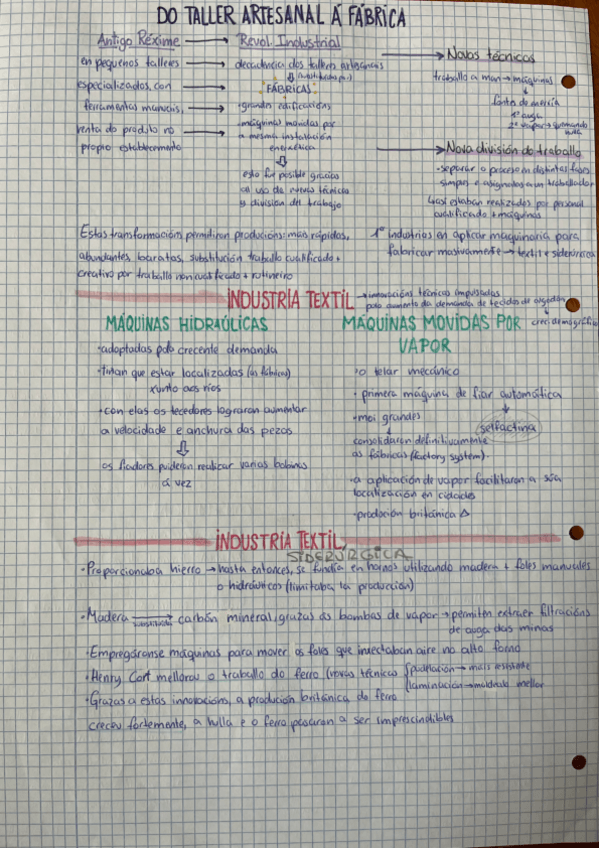 DO TALLER ARTESANAL Á FÁBRICA
Antigo Réxime → Revol. Industrial
en pequenos talleres → decadencia dos tallers artesanais
↓ (substituídos por)
especializados, con → FÁBRICAS
ferramentas manuais, → ·grandes edificacións
venta do produto no → ·máquinas movidas por
propio establecemento
a mesma instalación
enerxética
⇩
esto fue posible gracias
ao uso de novas técnicas
y división del trabajo
→ Novas técnicas
traballo a man → máquinas
↓
fontes de enerxía
1º auga
2º vapor → queimando
hulla
→ Nova división do traballo
·separar o proceso en distintas fases
simples e asignalas a un traballador
↳ así estaban realizados por personal
cualificado + máquinas
Estas transformacións permitiron producións: mais rápidas,
abundantes, baratas, substitución traballo cualificado +
creativo por traballo non cualificado + rutineiro
1º industrias en aplicar maquinaria para
fabricar masivamente → textil e siderúrxica
INDUSTRIA TEXTIL → innovacións técnicas impulsadas
polo aumento da demanda de tecidos de algodón
↳ crec. demográfico
MÁQUINAS HIDRAÚLICAS
·adoptadas pola crecente demanda
·tiñan que estar localizadas (as fábricas)
xunto aos ríos
·con elas os tecedores lograron aumentar
a velocidade e anchura das pezas
⇩
os fiadores puideron realizar varias bobinas
á vez
MÁQUINAS MOVIDAS POR
VAPOR
·o telar mecánico
·primeira máquina de fiar automática
↓
selfactina
·moi grandes
↓
consolidaron definitivamente
as fábricas (factory system)
·a aplicación de vapor facilitaron a súa
localización en cidades
·produción británica Δ
INDUSTRIA TEXTIL
SIDERÚRGICA
·Proporcionaba hierro → hasta entonces, se fundía en hornos utilizando madera + foles manuales
o hidráulicos (limitaba la producción)
·Madera → substituída carbón mineral, grazas ás bombas de vapor → permiten extraer filtracións
de auga das minas
·Empregáronse máquinas para mover os foles que inxectaban aire no alto forno
·Henry Cort mellorou o traballo do ferro (novas técnicas { pudelación → mais resistente
laminación → moldeado mellor
·Grazas a estas innovacións, a produción británica do ferro
creceu fortemente, a hulla e o ferro pasaron a ser imprescindibles